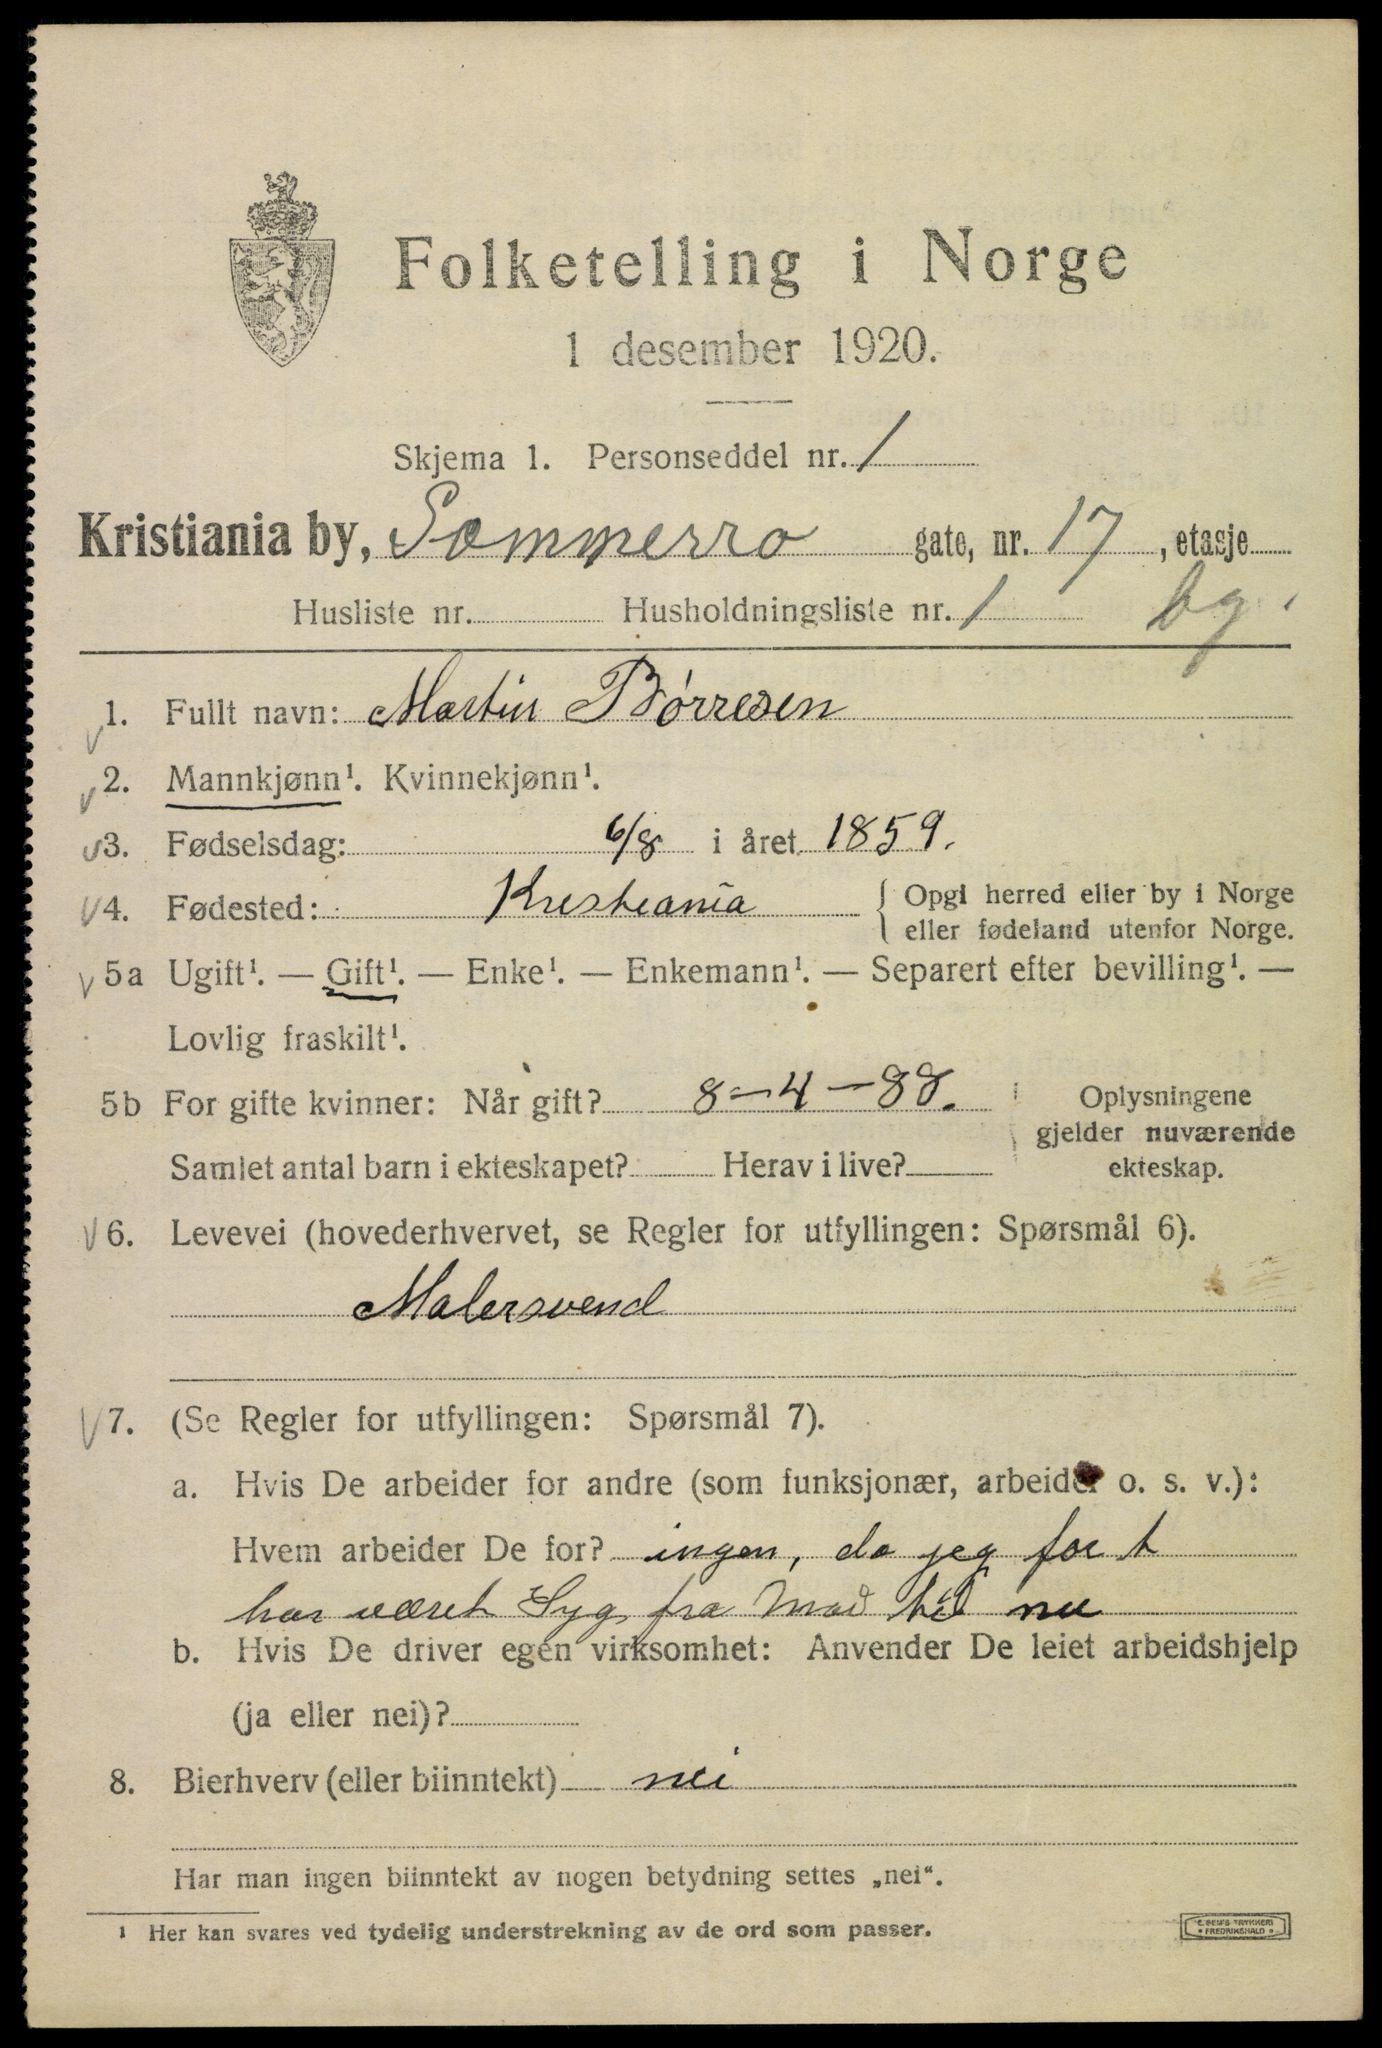 Folketelling i Norge
1 desember 1920.
Skjema 1. Personseddel nr. 1
Kristiania by, Sommerro gate, nr. 17, etasje
Husliste nr. Husholdningsliste nr. 1 bg.
1. Fullt navn: Martin Børresen
2. Mannkjønn¹. Kvinnekjønn¹.
3. Fødselsdag: 6/8 i året 1859.
4. Fødested: Kristiania { Opgi herred eller by i Norge
eller fødeland utenfor Norge.
5a Ugift¹. — Gift¹. — Enke¹. — Enkemann¹. — Separert efter bevilling¹. —
Lovlig fraskilt¹.
5b For gifte kvinner: Når gift? 8-4-88. Oplysningene
gjelder nuværende
Samlet antal barn i ekteskapet? Herav i live? ekteskap.
6. Levevei (hovederhvervet, se Regler for utfyllingen: Spørsmål 6).
Malersvend
7. (Se Regler for utfyllingen: Spørsmål 7).
a. Hvis De arbeider for andre (som funksjonær, arbeider o. s. v.):
Hvem arbeider De for? ingen, da jeg for t
har været Syg fra Mai til nu
b. Hvis De driver egen virksomhet: Anvender De leiet arbeidshjelp
(ja eller nei)?
8. Bierhverv (eller biinntekt) nei
Har man ingen biinntekt av nogen betydning settes „nei“.
¹ Her kan svares ved tydelig understrekning av de ord som passer.
E. SEMS TRYKKERI
• FREDRIKSHALD •